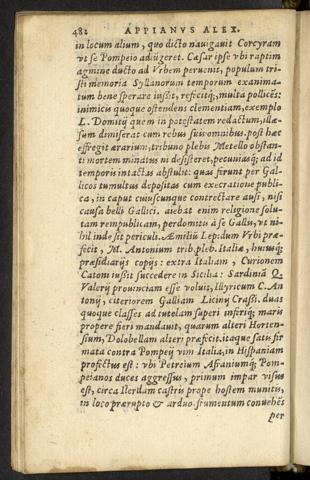 482 APPIANVS ALEX.
in locum alium, quo dicto nauigauit Corcyram
vt se Pompeio adiũgeret. Cæsar ipse vbi raptim
agmine ducto ad Vrbem peruenit, populum tri-
sti memoria Syllanorum temporum exanima-
tum bene sperare iußit, refecitq́;, multa pollicẽs:
inimicis quoque ostendens clementiam, exemplo
L. Domitij quem in potestatem redactum, illæ-
sum dimiserat cum rebus suis omnibus. post hæc
effregit ærarium, tribuno plebis Metello obstan-
ti mortem minatus ni desisteret, pecuniasq́; ad id
temporis intactas abstulit: quas ferunt per Gal-
licos tumultus depositas cum execratione publi-
ca, in caput cuiuscunque contrectare ausi, nisi
causa belli Gallici. aiebat enim religione solu-
tam rempublicam, perdomitis à se Gallis, vt ni-
hil inde sit periculi. Æmiliũ Lepidum Vrbi præ-
fecit, M. Antonium trib. pleb. Italiæ, huiusq́;
præsidiarijs copijs: extra Italiam, Curionem
Catoni iußit succedere in Sicilia: Sardiniã Q.
Valerij prouinciam esse voluit, Illyricum C. An
tonij, citeriorem Galliam Licinij Craßi. duas
quoque classes ad tutelam superi inferiq́; maris
propere fieri mandauit, quarum alteri Horten-
sium, Dolobellam alteri præfecit. itaque satis fir
mata contra Pompeij vim Italia, in Hispaniam
profectus est: vbi Petreium Afraniumq́; Pom-
peianos duces aggressus, primum impar visus
est, circa Ilerdam castris prope hostem munitis,
in loco prærupto & arduo. frumentum conuehẽs
per